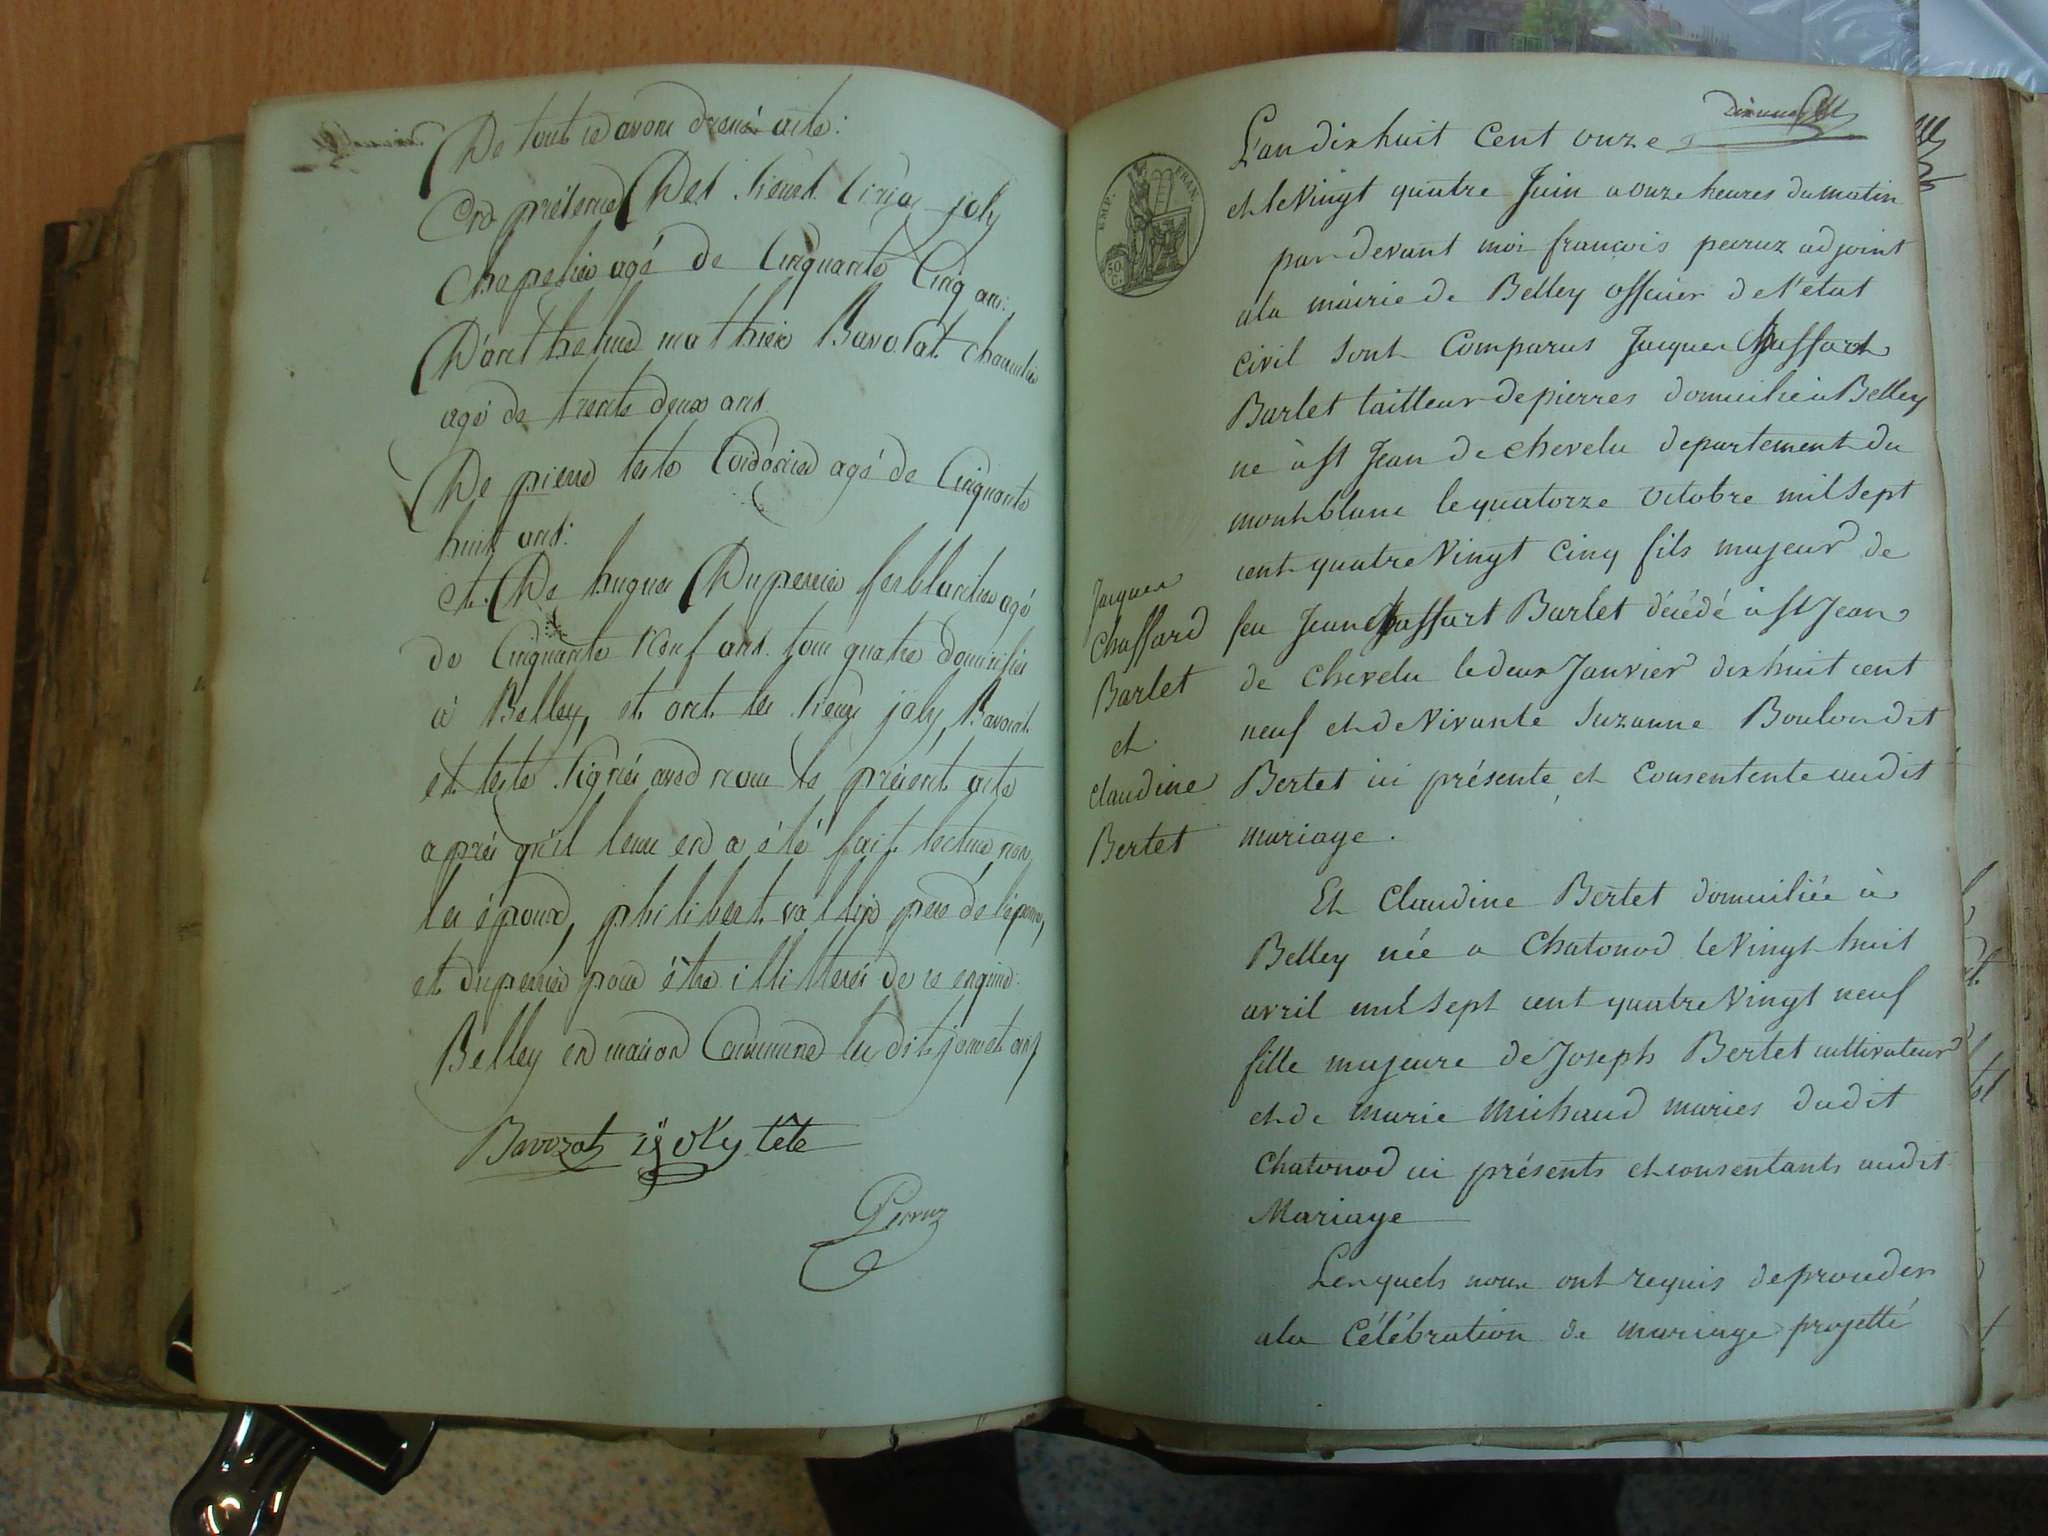 De tout ce avons dressé acte:
En présence Des sieurs joly
Chapelier agé de Cinquante Cinq ans:
D'anthelme mathieu Bavozat
agé de trente deux ans
De pierre teste Cordonnier agé de Cinquante
huit ans:
et De hugues Duperrier ferblantier agé
de Cinquante Neuf ans tous quatre domiciliés
à Belley, et ont les sieurs joly, Bavozat
et teste signés avec nous le présent acte
après qu'il leur en a été fait lecture non
les époux, philibert vallin pere de l'épouse,
et duperrier pour être illitterés de ce enquis
Belley en maison Commune les dits jour et an
Bavozat joly tête
Perruz
L'an dix huit Cent onze
et le Vingt quatre Juin a onze heures du matin
par devant moi francois perruz adjoint
ala mairie de Belley officier de l'état
civil sont Comparus Jacques Chaffard
Barlet tailleur de pierres domicilié à Belley
né à st Jean de chevelu departement du
mont blanc le quatorze octobre mil sept
cent quatre Vingt cinq fils majeur de
feu Jean Chaffart Barlet décédé à st Jean
de chevelu le deux Janvier dix huit cent
neuf et de Vivante Suzanne Boulon dit
Bertet ici présente et Consentente audit
mariage.
Jacques
Chaffard
Barlet
et
claudine
Bertet
Et Claudine Bertet domiciliée à
Belley née a Chatonod le Vingt huit
avril mil sept cent quatre Vingt neuf
fille majeure de Joseph Bertet cultivateur
et de marie Michaud mariés dudit
Chatonod ici présents et consentants audit
Mariage
Lesquels nous ont requis de proceder
ala Célébration de mariage projetté
EMP. FRAN.
50 C.